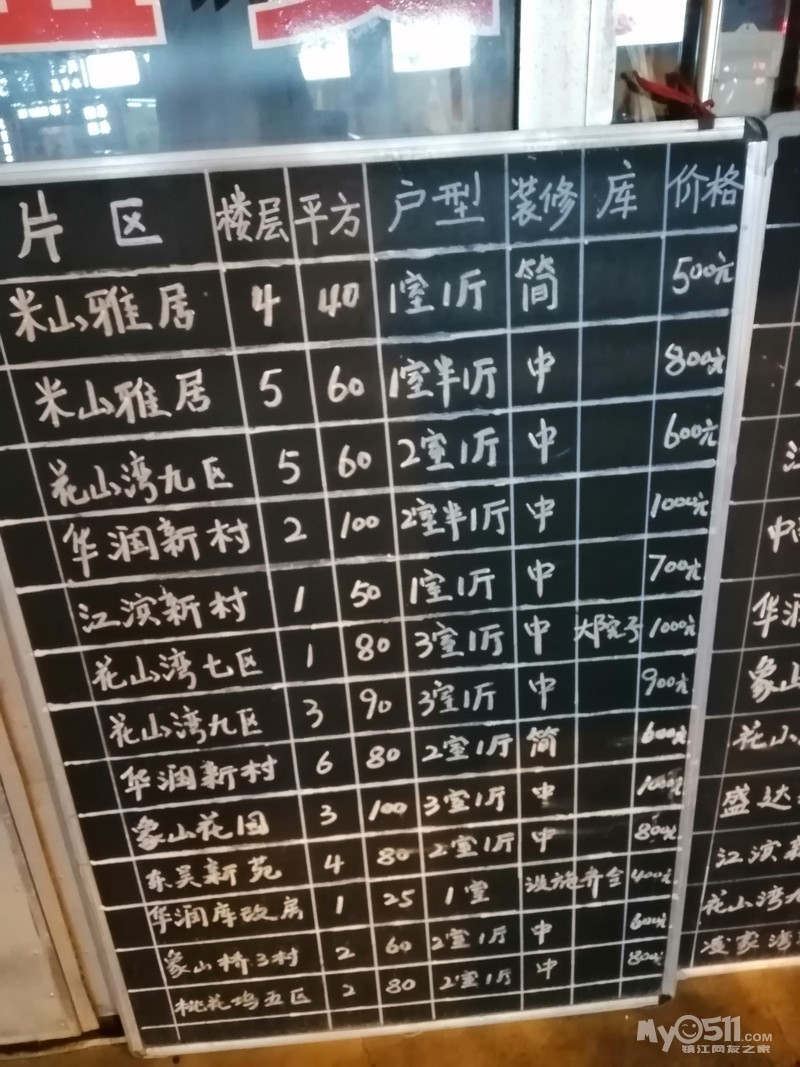 片区 楼层 平方 户型 装修 库 价格
米山雅居 4 40 1室1厅 简 500元
米山雅居 5 60 1室半1厅 中 800元
花山湾九区 5 60 2室1厅 中 600元
华润新村 2 100 2室半1厅 中 1000元
江滨新村 1 50 1室1厅 中 700元
花山湾七区 1 80 3室1厅 中 大院子 1000元
花山湾九区 3 90 3室1厅 中 900元
华润新村 6 80 2室1厅 简 600元
象山花园 3 100 3室1厅 中 1000元
东吴新苑 4 80 2室1厅 中 800元
华润库改房 1 25 1室 设施齐全 400元
象山桥3村 2 60 2室1厅 中 600元
桃花坞五区 2 80 2室1厅 中 800元
江
中
华润
象山
花山
盛达
江滨新
花山湾九
凌家湾
My0511.COM
镇江网友之家